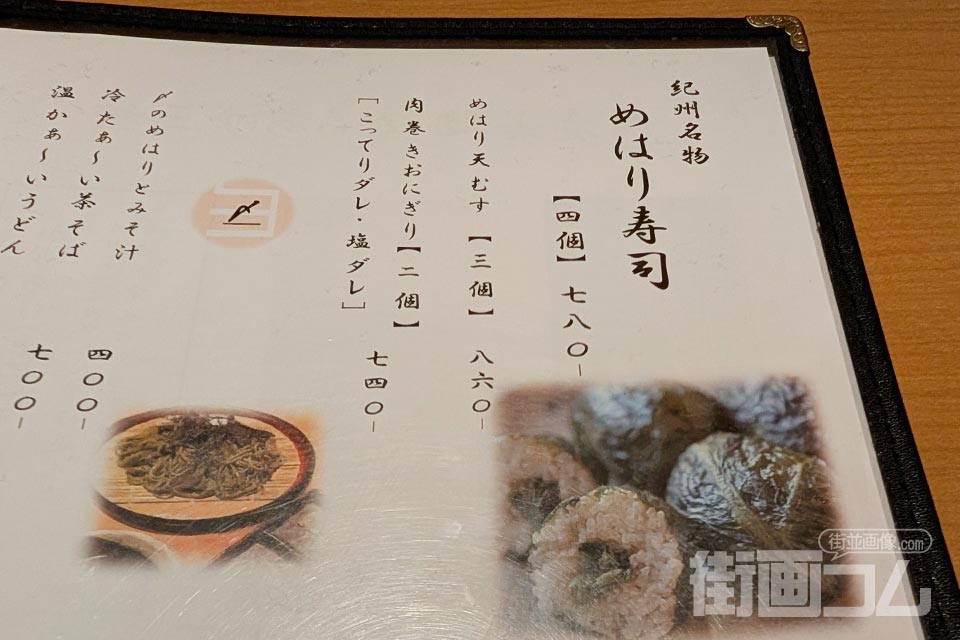 紀州名物
めはり寿司
【四個】 七八〇-
めはり天むす 【三個】 八六〇-
肉巻きおにぎり【二個】 七四〇-
[こってりダレ・塩ダレ]
〆
〆のめはりとみそ汁 四〇〇-
冷たぁ〜い茶そば 七〇〇-
温かぁ〜いうどん
街並画像.com
街画コム